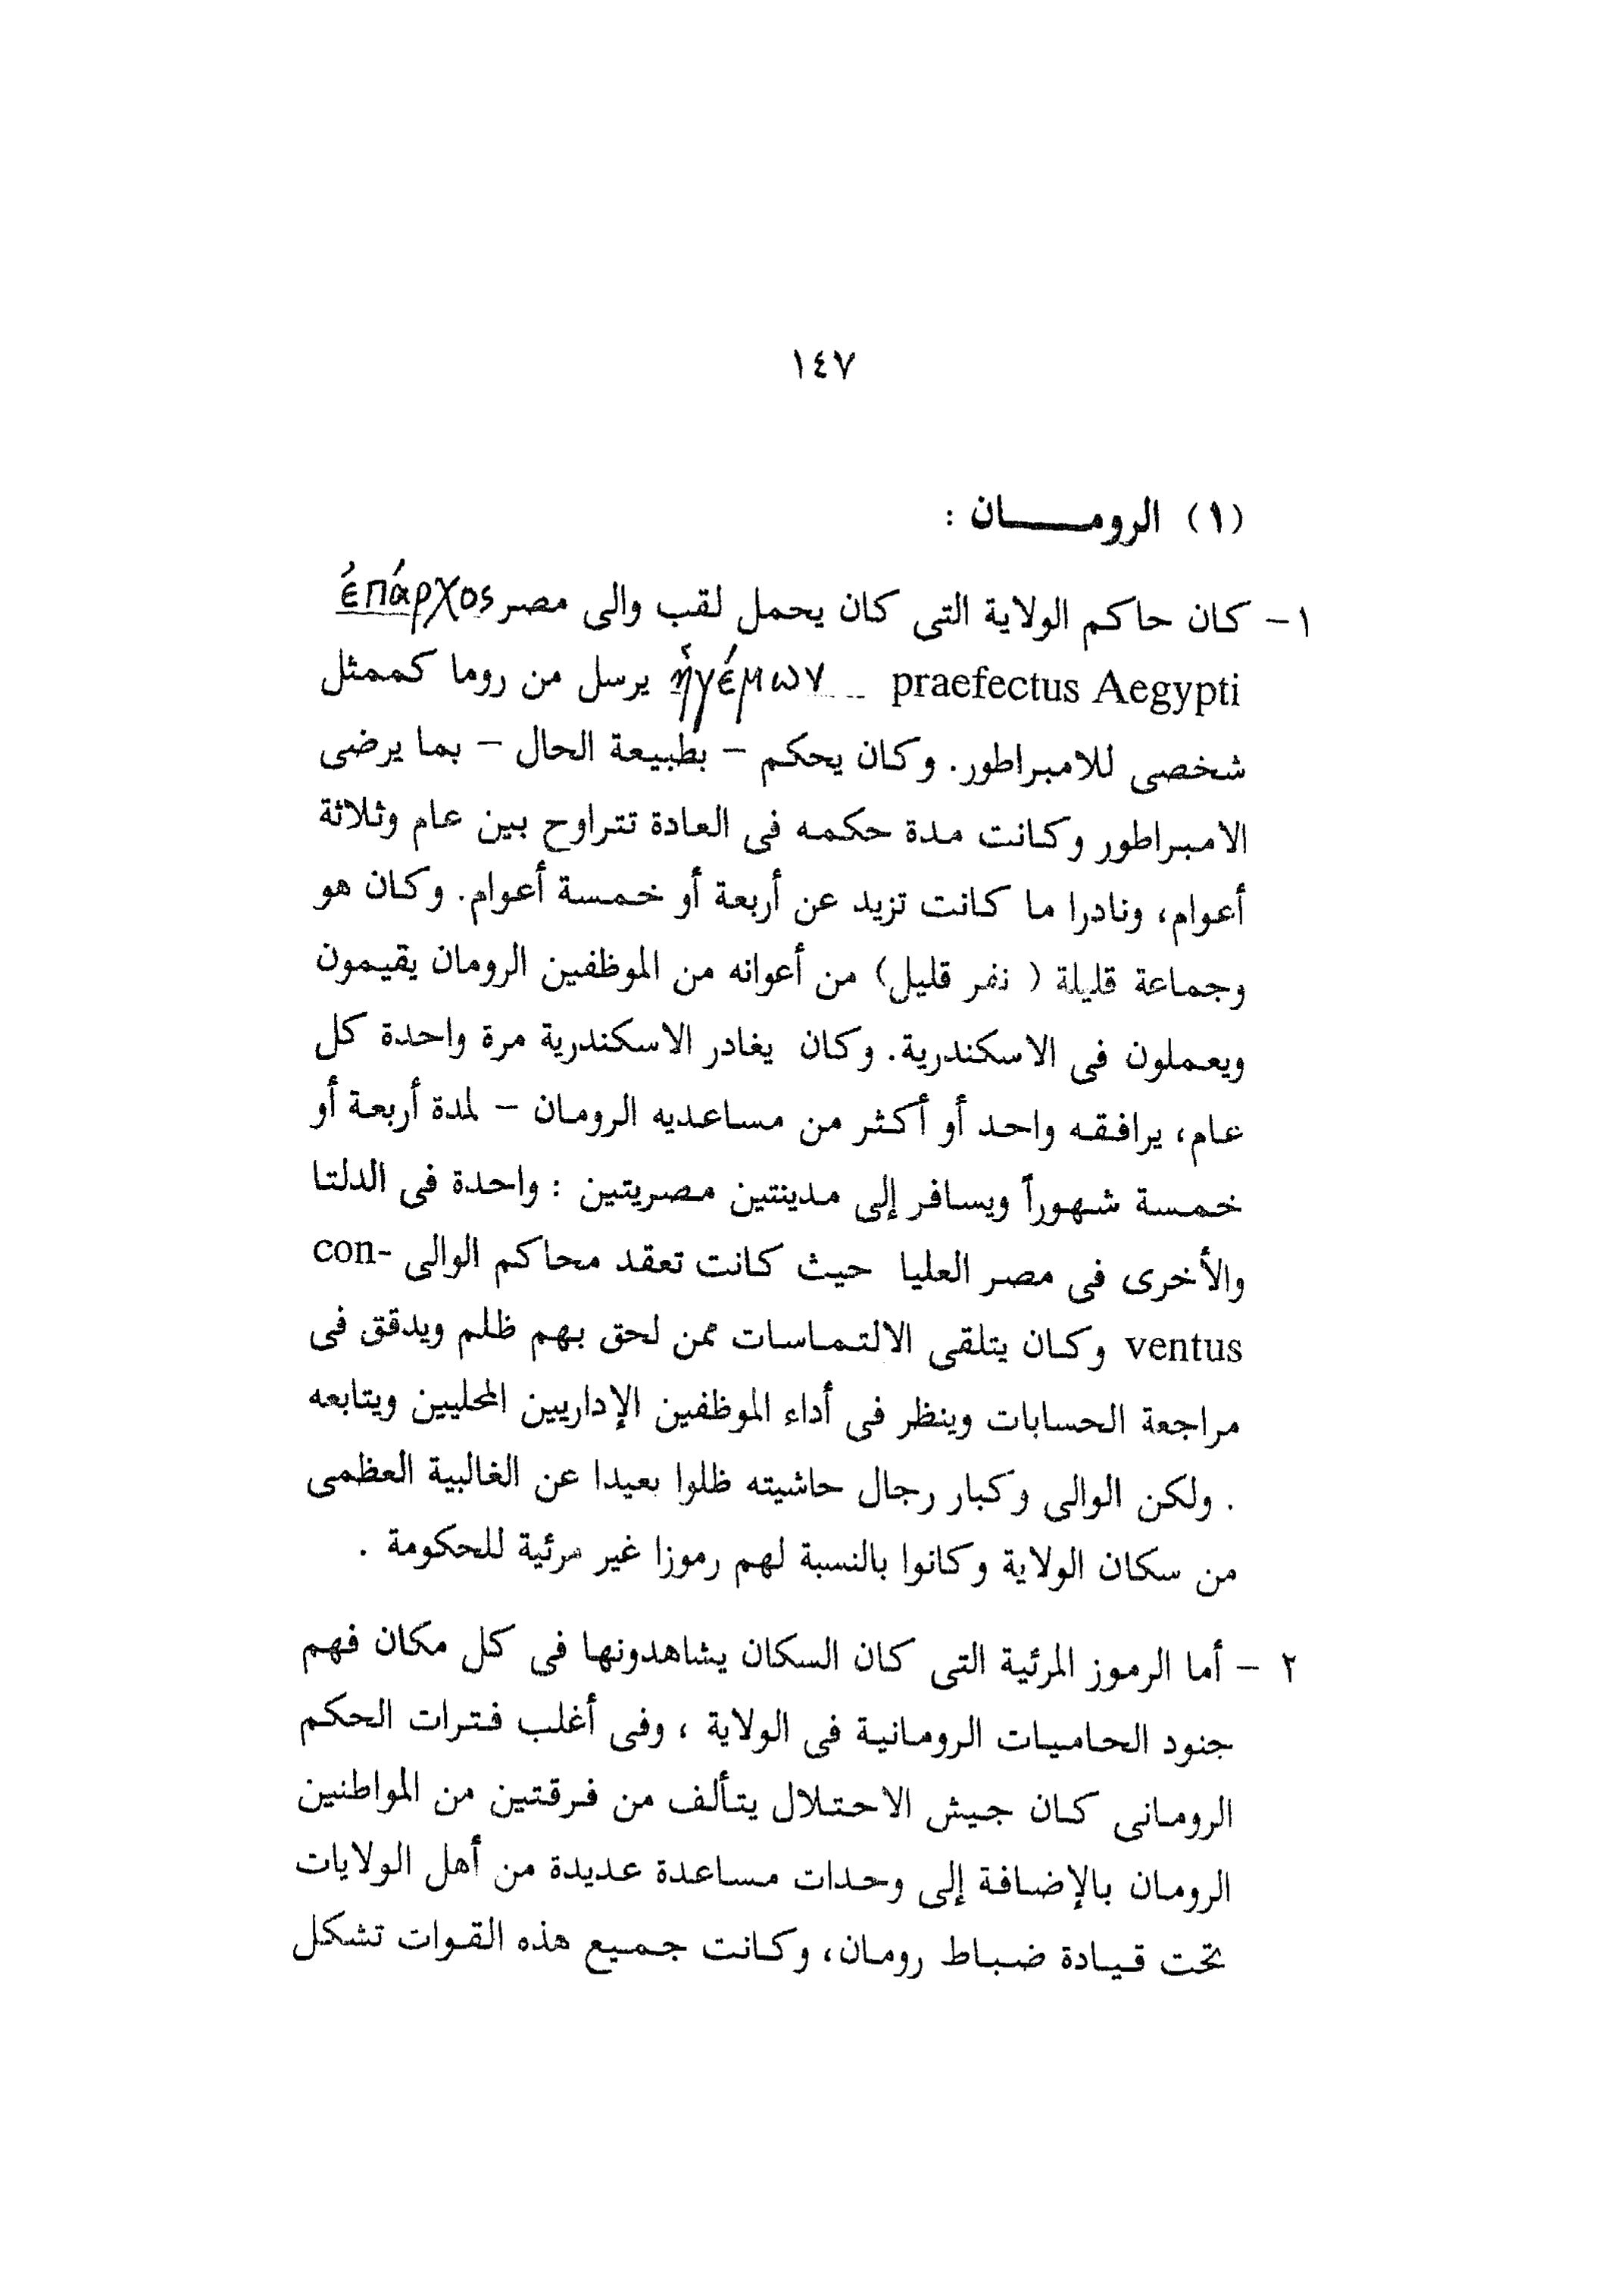 ١٤٧
(١) الرومـــــان :
١- كان حاكم الولاية التى كان يحمل لقب والى مصر έπάρχος
praefectus Aegypti ἡγέμων يرسل من روما كممثل
شخصى للامبراطور. وكان يحكم - بطبيعة الحال - بما يرضى
الامبراطور وكانت مدة حكمه فى العادة تتراوح بين عام وثلاثة
أعوام، ونادرا ما كانت تزيد عن أربعة أو خمسة أعوام. وكان هو
وجماعة قليلة ( نفر قليل) من أعوانه من الموظفين الرومان يقيمون
ويعملون فى الاسكندرية. وكان يغادر الاسكندرية مرة واحدة كل
عام، يرافقه واحد أو أكثر من مساعديه الرومان - لمدة أربعة أو
خمسة شهوراً ويسافر إلى مدينتين مصريتين : واحدة فى الدلتا
والأخرى فى مصر العليا حيث كانت تعقد محاكم الوالى con-
ventus وكان يتلقى الالتماسات ممن لحق بهم ظلم ويدقق فى
مراجعة الحسابات وينظر فى أداء الموظفين الإداريين المحليين ويتابعه
. ولكن الوالى وكبار رجال حاشيته ظلوا بعيدا عن الغالبية العظمى
من سكان الولاية وكانوا بالنسبة لهم رموزا غير مرئية للحكومة .
٢ - أما الرموز المرئية التى كان السكان يشاهدونها فى كل مكان فهم
جنود الحاميات الرومانية فى الولاية ، وفى أغلب فترات الحكم
الرومانى كان جيش الاحتلال يتألف من فرقتين من المواطنين
الرومان بالإضافة إلى وحدات مساعدة عديدة من أهل الولايات
تحت قيادة ضباط رومان، وكانت جميع هذه القوات تشكل